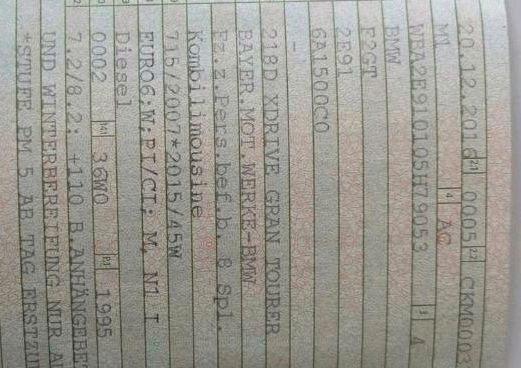 20.12.2016 2.1 0005 2.2 CKM0003
M1 4 AC
WBA2E910105H79053 3 4
BMW
F2GT
2E91
6A1500C0
-
218D XDRIVE GRAN TOURER
BAYER.MOT.WERKE-BMW
Fz.z.Pers.bef.b. 8 Spl.
Kombilimousine
715/2007*2015/45W
EURO6;W;PI/CI; M, N1 I
Diesel
0002 36W0 1995
7.2/8.2: +110 B.ANHÄNGEBE
UND WINTERBEREIFUNG NUR A
*STUFE PM 5 AB TAG ERSTZU